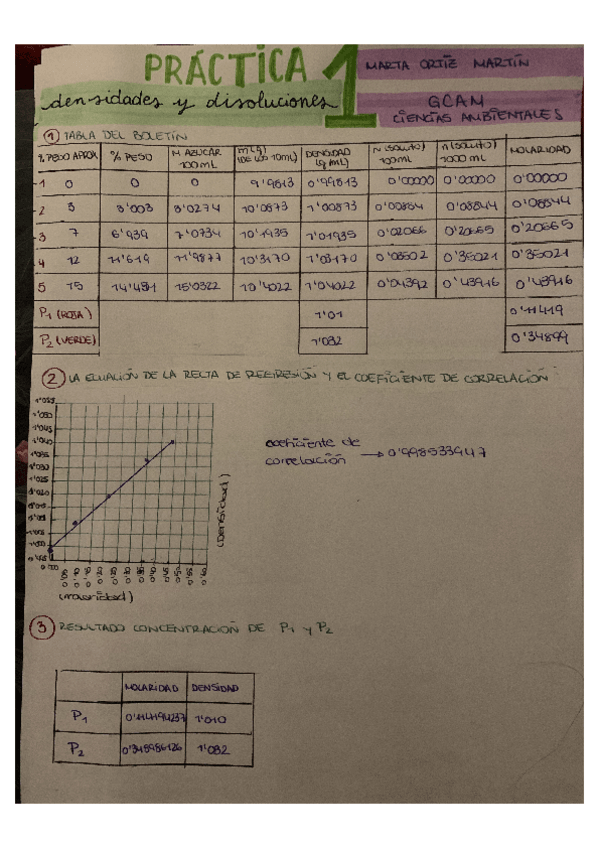 PRÁCTICA 1
densidades y disoluciones
MARTA ORTIZ MARTÍN
GCAM
CIENCIAS AMBIENTALES
① TABLA DEL BOLETÍN
% PESO APROX % PESO M AZUCAR 100mL m(g) (DE LOS 10mL) DENSIDAD (g/mL) N (SOLUTO) 100mL n (SOLUTO) 1000 mL MOLARIDAD
1 0 0 0 9'9813 0'99813 0'00000 0'00000 0'00000
2 3 3'003 3'0274 10'0873 1'00873 0'00884 0'08844 0'08844
3 7 6'939 7'0734 10'1935 1'01935 0'02066 0'20665 0'20665
4 12 11'619 11'9877 10'3170 1'03170 0'03502 0'35021 0'35021
5 15 14'451 15'0322 10'4022 1'04022 0'04392 0'43916 0'43916
P1 (ROSA) 1'01 0'11419
P2 (VERDE) 1'032 0'34899
② LA ECUACIÓN DE LA RECTA DE REGRESIÓN Y EL COEFICIENTE DE CORRELACIÓN
1'055
1'050
1'045
1'040
1'035
1'030
1'025
1'020
coeficiente de
correlación → 0'998533947
(densidad)
(molaridad)
③ RESULTADO CONCENTRACIÓN DE P1 y P2
MOLARIDAD DENSIDAD
P1 0'114194237 1'010
P2 0'348986126 1'032